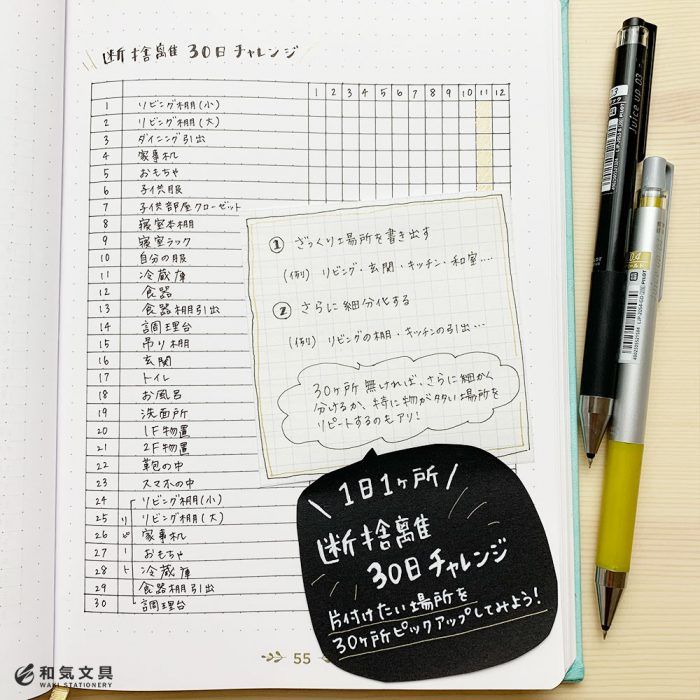 断捨離 30日チャレンジ
1 2 3 4 5 6 7 8 9 10 11 12
1 リビング棚(小)
2 リビング棚(大)
3 ダイニング引出
4 家事机
5 おもちゃ
6 子供服
7 子供部屋クローゼット
8 寝室本棚
9 寝室ラック
10 自分の服
11 冷蔵庫
12 食器
13 食器棚引出
14 調理台
15 吊り棚
16 玄関
17 トイレ
18 お風呂
19 洗面所
20 1F物置
21 2F物置
22 鞄の中
23 スマホの中
24 リビング棚(小)
25 リビング棚(大)
26 家事机
27 おもちゃ
28 冷蔵庫
29 食器棚引出
30 調理台
リピート
① ざっくり場所を書き出す
(例) リビング・玄関・キッチン・和室....
② さらに細分化する
(例) リビングの棚・キッチンの引出...
30ヶ所無ければ、さらに細かく
分けるか、特に物が多い場所を
リピートするのもアリ!
1日1ヶ所
断捨離
30日チャレンジ
片付けたい場所を
30ヶ所ピックアップしてみよう!
55
和気文具
WAKI STATIONERY
Juice up 03
04
PILOT